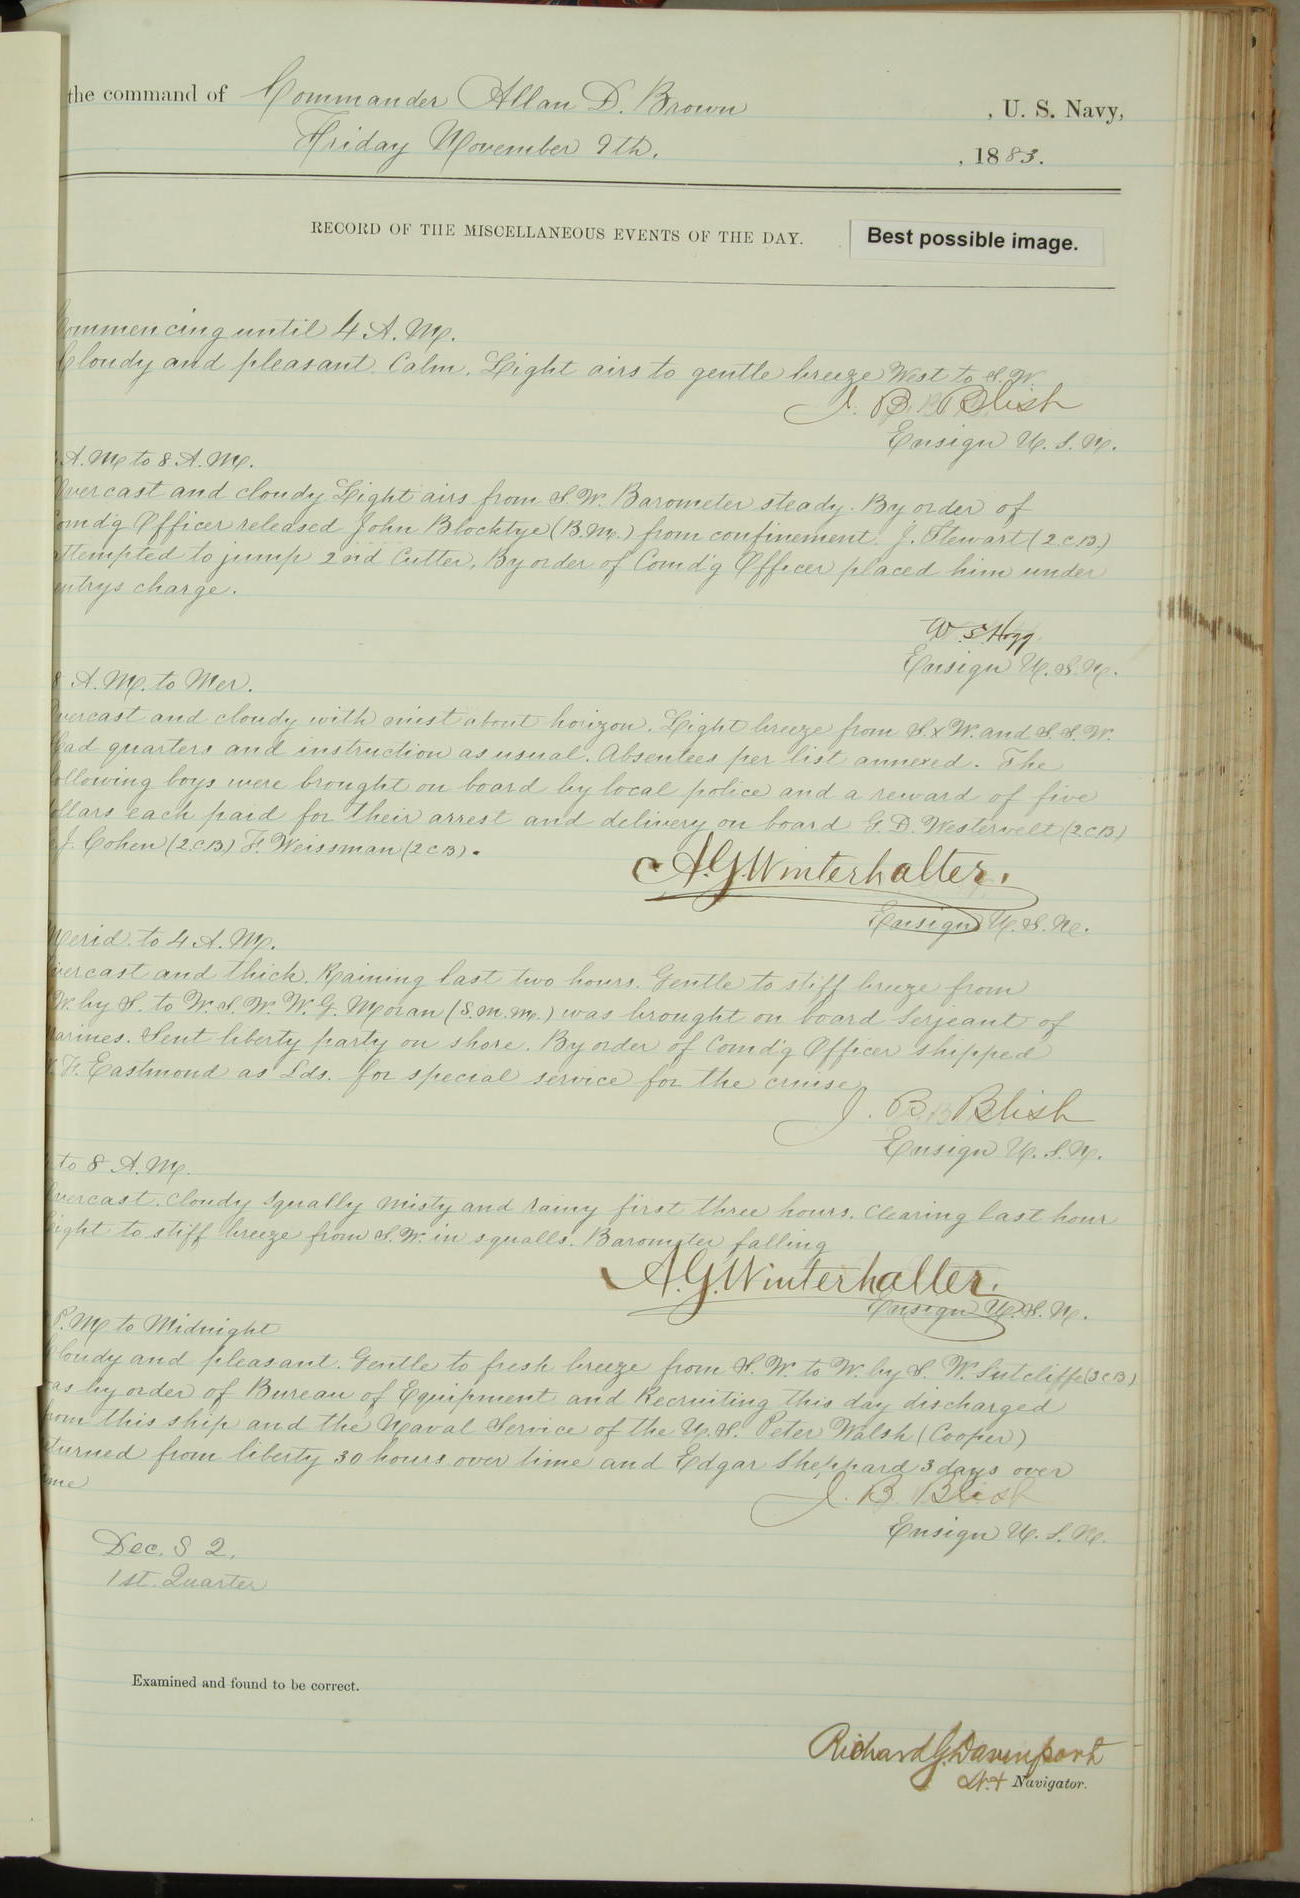 the command of Commander Allan D. Brown , U. S. Navy,
Friday November 9th. , 1883.
RECORD OF THE MISCELLANEOUS EVENTS OF THE DAY.
Best possible image.
Commencing until 4 A. M.
Cloudy and pleasant. Calm. Light airs to gentle breeze West to S.W.
J. B. Blish
Ensign U. S. N.
A. M. to 8 A. M.
Overcast and cloudy Light airs from S.W. Barometer steady. By order of
Comd'g Officer released John Blocktye (B.M.) from confinement. J. Stewart (2 C.B.)
attempted to jump 2nd Cutter. By order of Comd'g Officer placed him under
entrys charge.
W. S. Hogg
Ensign U. S. N.
8 A. M. to Mer.
Overcast and cloudy with mist about horizon. Light breeze from S. x W. and S. S. W.
Had quarters and instruction as usual. Absentees per list annexed. The
following boys were brought on board by local police and a reward of five
dollars each paid for their arrest and delivery on board G. D. Westervelt (2CB)
J. Cohen (2CB) F. Weissman (2CB).
A. G. Winterhalter.
Ensign U. S. N.
Merid. to 4 A. M.
Overcast and thick. Raining last two hours. Gentle to stiff breeze from
W. by S. to W. S. W. W. G. Moran (S.M.M.) was brought on board Serjeant of
marines. Sent liberty party on shore. By order of Comd'g Officer shipped
F. Eastmond as Lds. for special service for the cruise
J. B. Blish
Ensign U. S. N.
to 8 A. M.
Overcast. Cloudy squally misty and rainy first three hours. Clearing last hour
Light to stiff breeze from S. W. in squalls. Barometer falling
A. G. Winterhalter.
Ensign U. S. N.
P. M. to Midnight
Cloudy and pleasant. Gentle to fresh breeze from S. W. to W. by S. W. Sutcliffe (3CB)
was by order of Bureau of Equipment and Recruiting this day discharged
from this ship and the Naval Service of the U. S. Peter Walsh (Cooper)
returned from liberty 30 hours over time and Edgar Sheppard 3 days over
time
J. B. Blish
Ensign U. S. N.
Dec. S 2.
1st. Quarter
Examined and found to be correct.
Richard G. Davenport
Navigator.